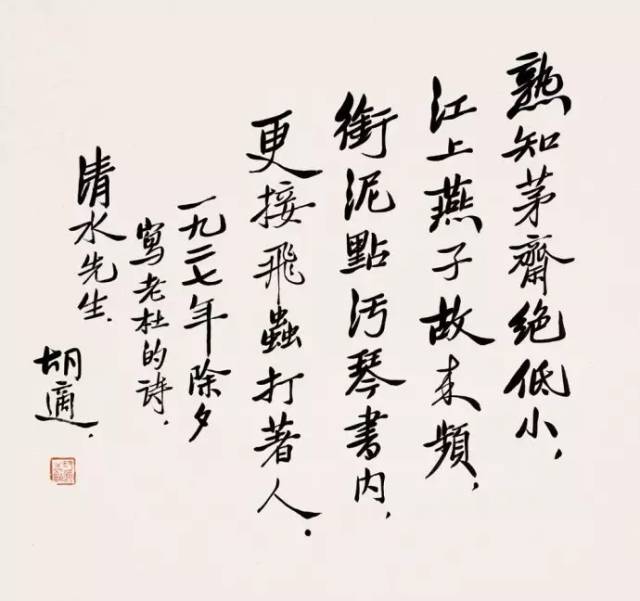 熟知茅齋绝低小，
江上燕子故来頻，
銜泥點汚琴書内，
更接飛蟲打著人．
一九二七年除夕
寫老杜的詩．
清水先生．
胡適．